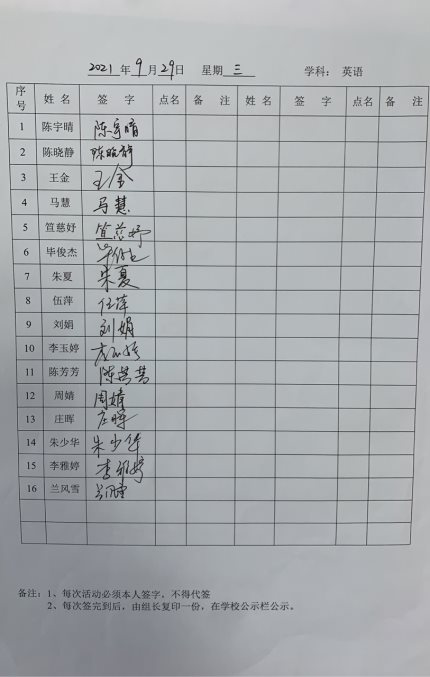 2021 年 9 月 29日 星期 三 学科： 英语
序号 姓 名 签 字 点名 备 注 姓 名 签 字 点名 备 注
1 陈宇晴 陈宇晴
2 陈晓静 陈晓静
3 王金 王金
4 马慧 马慧
5 笪慈妤 笪慈妤
6 毕俊杰
7 朱夏 朱夏
8 伍萍 伍萍
9 刘娟 刘娟
10 李玉婷
11 陈芳芳 陈芳芳
12 周婧 周婧
13 庄晖 庄晖
14 朱少华 朱少华
15 李雅婷 李雅婷
16 兰风雪
备注：1、每次活动必须本人签字，不得代签
2、每次签完到后，由组长复印一份，在学校公示栏公示。